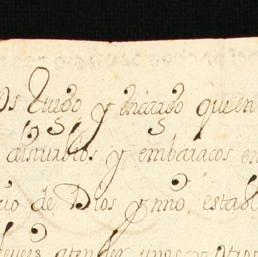 os Cuido y encargo que en
disturbios y embaraços en
cio de Dios y mio, establ
leyes atender unos y otros